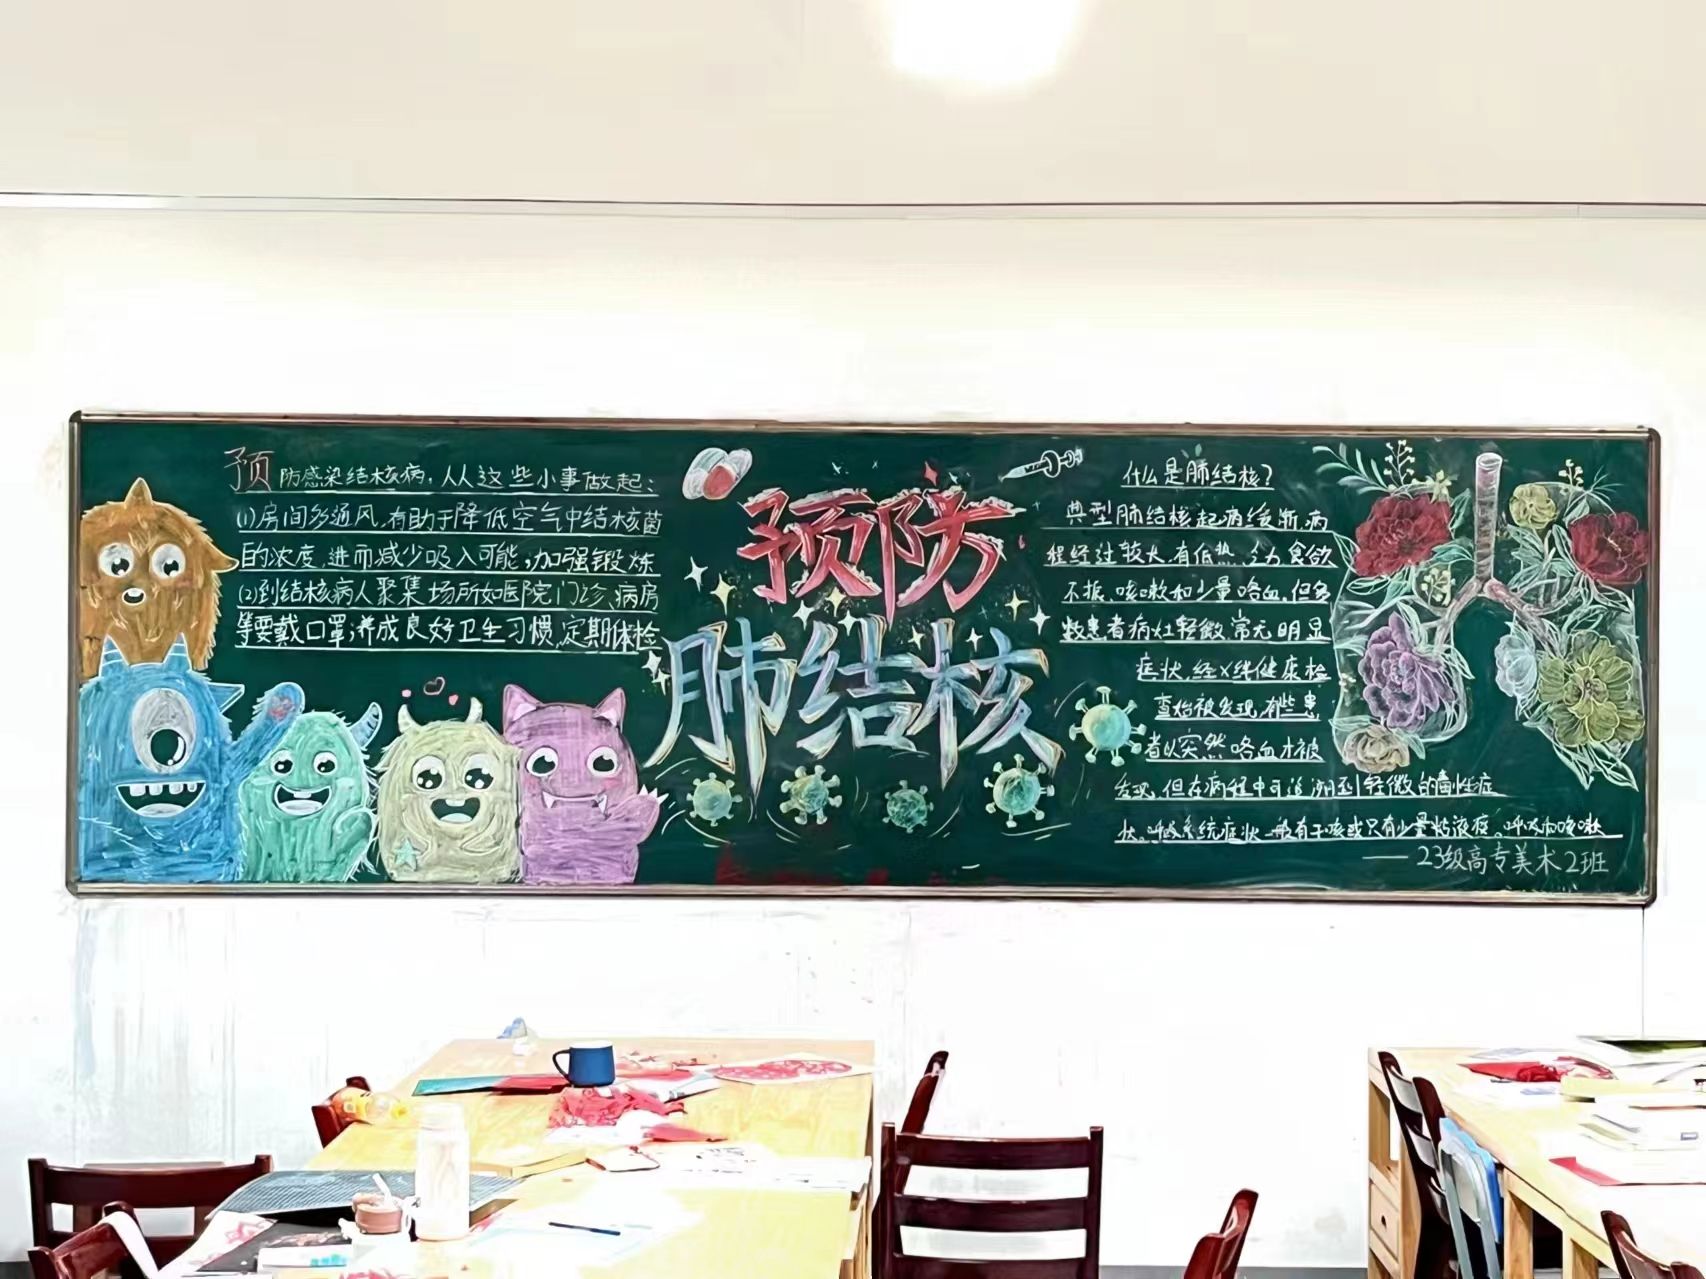 预防感染结核病，从这些小事做起：
(1)房间多通风，有助于降低空气中结核菌
的浓度，进而减少吸入可能；加强锻炼
(2)到结核病人聚集场所如医院门诊、病房
等要戴口罩；养成良好卫生习惯，定期体检
预防
肺结核
什么是肺结核？
典型肺结核起病缓渐，病
程经过较长，有低热、乏力、食欲
不振、咳嗽和少量咯血。但多
数患者病灶轻微，常无明显
症状，经X线健康检
查始被发现，有些患
者以突然咯血才被
发现，但在病程中可追溯到轻微的毒性症
状。呼吸系统症状一般有干咳或只有少量粘液痰。
——23级高专美术2班